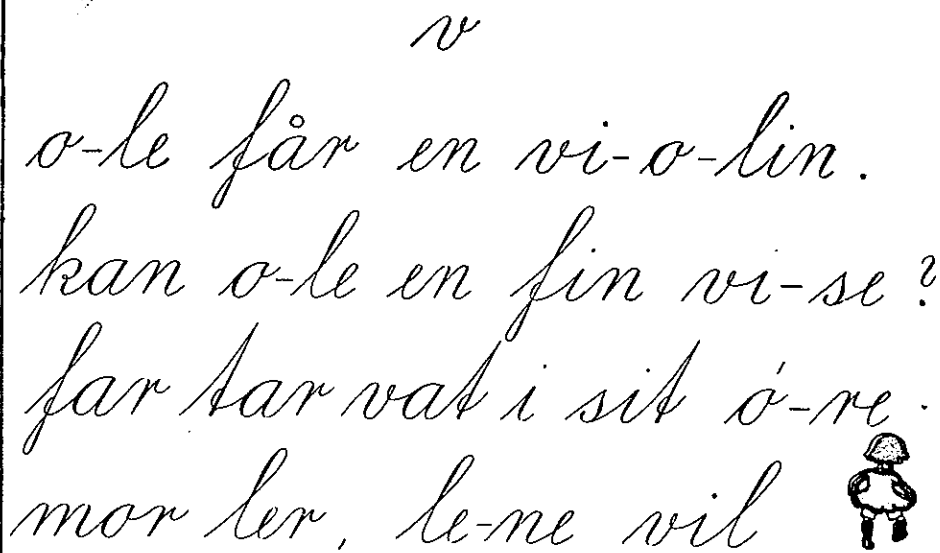 v
o-le får en vi-o-lin.
kan o-le en fin vi-se?
far tar vat i sit ó-re.
mor ler, le-ne vil